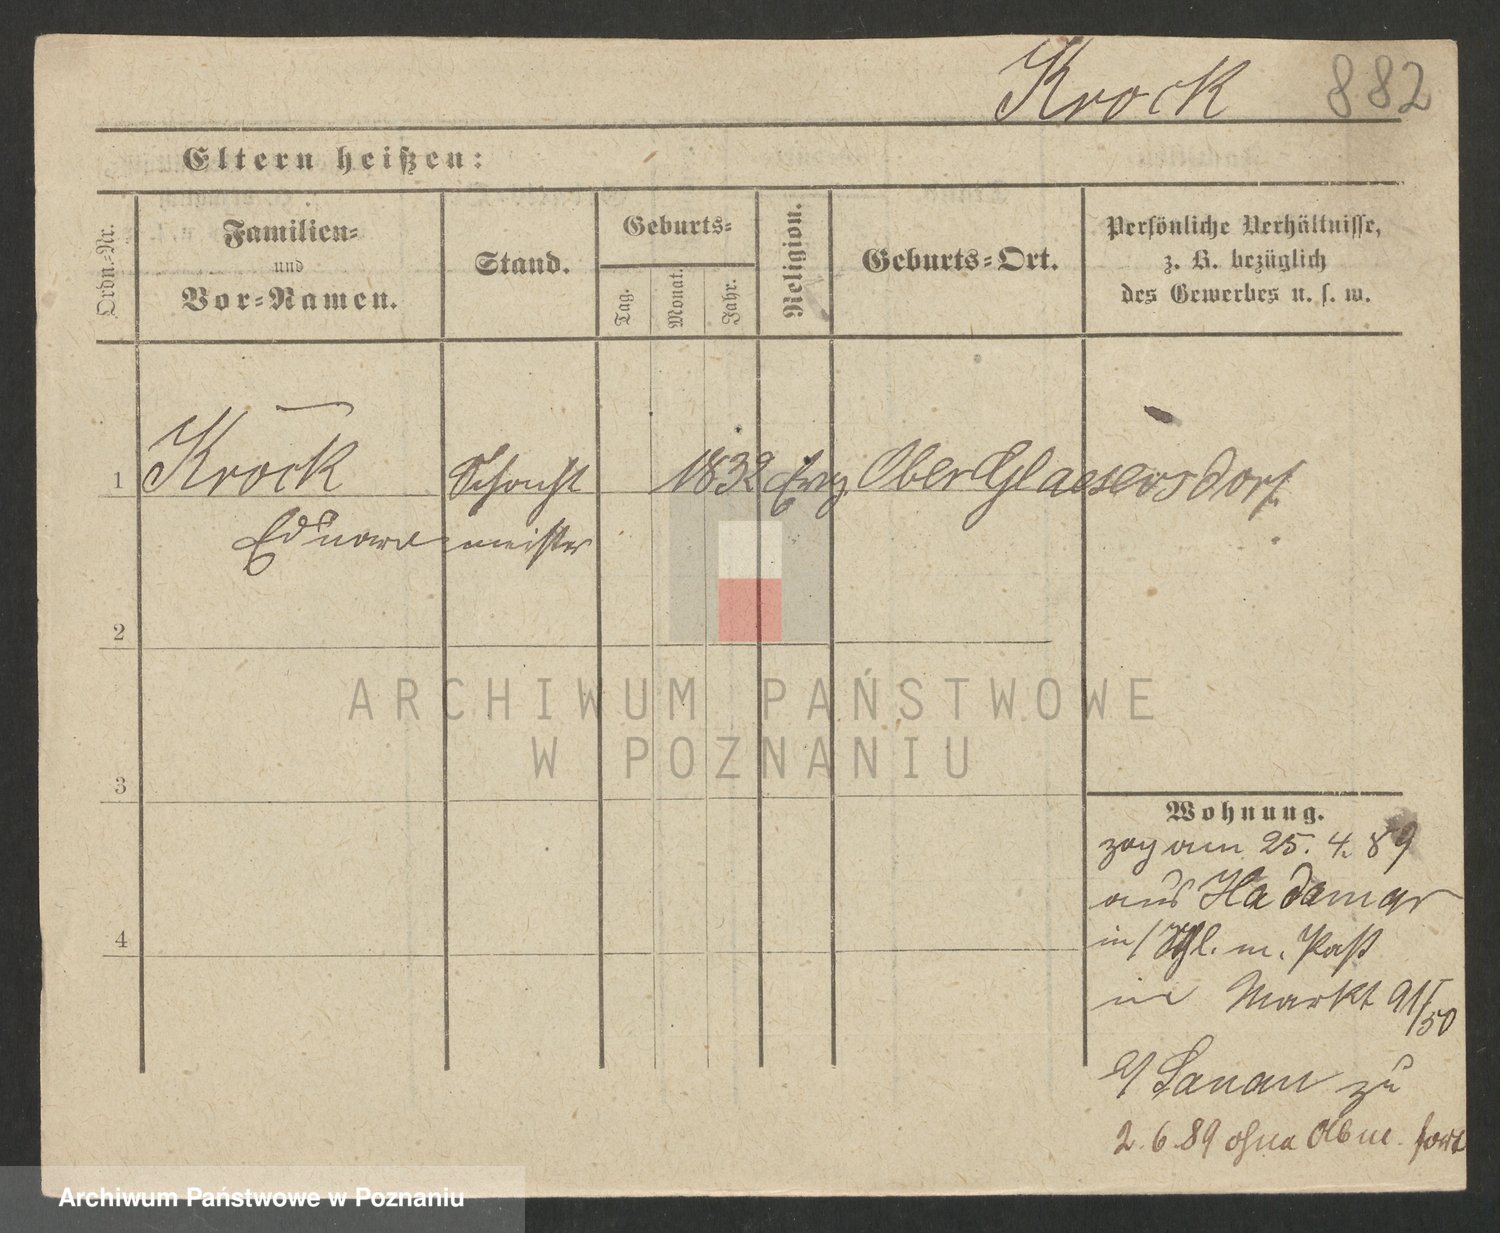 Krock 882
Eltern heißen:
Ordn.-Nr.
Familien-
und
Vor-Namen.
Stand.
Geburts-
Tag.
Monat.
Jahr.
Religion.
Geburts-Ort.
Persönliche Verhältnisse,
z. B. bezüglich
des Gewerbes u. s. w.
1 Krock 1832 Evg Ober Glaesersdorf
Eduard meister
2
3
4
Wohnung.
zog am 25. 4. 89
aus Hadamar
in/ m. Paß
in Markt 91/50
zu
2. 6. 89 ohne Abm. fort
ARCHIWUM PAŃSTWOWE
W POZNANIU
Archiwum Państwowe w Poznaniu